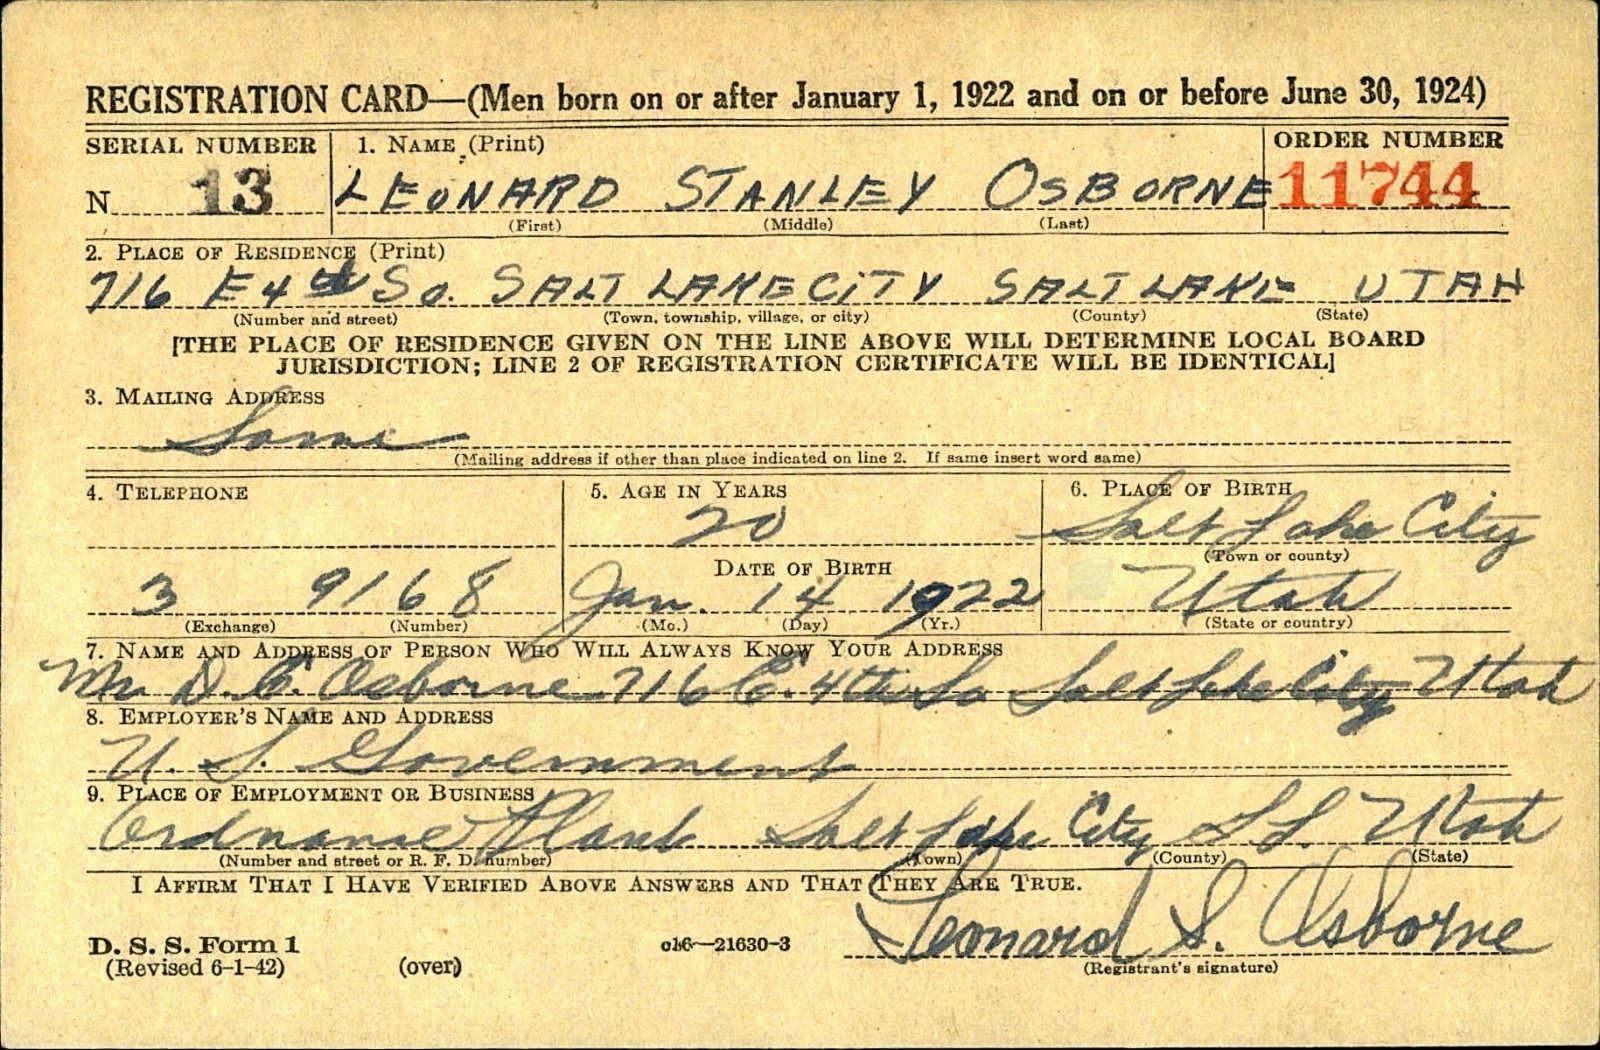 REGISTRATION CARD—(Men born on or after January 1, 1922 and on or before June 30, 1924)
SERIAL NUMBER 1. NAME (Print) ORDER NUMBER
N 13 LEONARD STANLEY OSBORNE 11744
(First) (Middle) (Last)
2. PLACE OF RESIDENCE (Print)
716 E 4th So. SALT LAKE CITY SALT LAKE UTAH
(Number and street) (Town, township, village, or city) (County) (State)
[THE PLACE OF RESIDENCE GIVEN ON THE LINE ABOVE WILL DETERMINE LOCAL BOARD
JURISDICTION; LINE 2 OF REGISTRATION CERTIFICATE WILL BE IDENTICAL]
3. MAILING ADDRESS
Same
(Mailing address if other than place indicated on line 2. If same insert word same)
4. TELEPHONE 5. AGE IN YEARS 6. PLACE OF BIRTH
20 Salt Lake City
DATE OF BIRTH (Town or county)
3 9168 Jan. 14 1922 Utah
(Exchange) (Number) (Mo.) (Day) (Yr.) (State or country)
7. NAME AND ADDRESS OF PERSON WHO WILL ALWAYS KNOW YOUR ADDRESS
Mr. D. E. Osborne 716 E. 4th So Salt Lake City Utah
8. EMPLOYER'S NAME AND ADDRESS
U. S. Government
9. PLACE OF EMPLOYMENT OR BUSINESS
Ordnance Plant Salt Lake City S L. Utah
(Number and street or R. F. D. number) (Town) (County) (State)
I AFFIRM THAT I HAVE VERIFIED ABOVE ANSWERS AND THAT THEY ARE TRUE.
Leonard S. Osborne
D. S. S. Form 1 16—21630-3
(Revised 6-1-42) (over) (Registrant's signature)